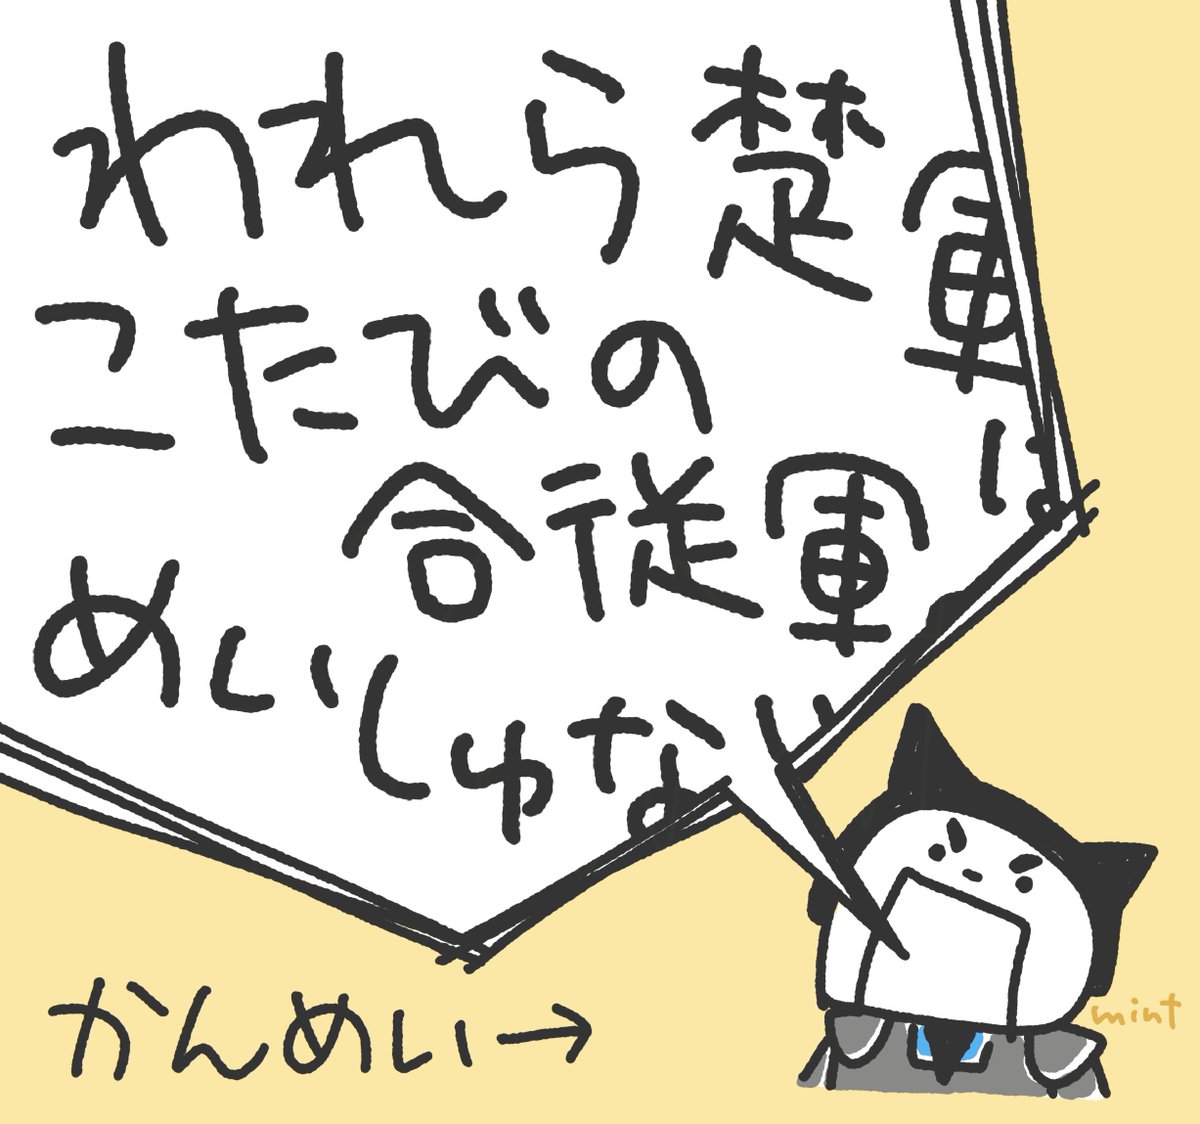 われら楚軍は
こたびの
合従軍
めいしゅなり
かんめい→
mint